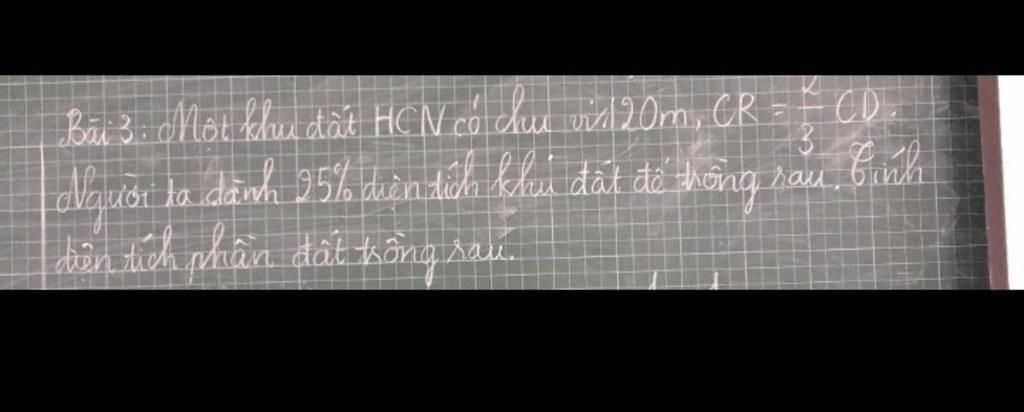 Bài 3: Một khu đất HCN có chu vi 120m, CR = 2/3 CD.
Người ta dành 25% diện tích khu đất để trồng rau. Tính
diện tích phần đất trồng rau.